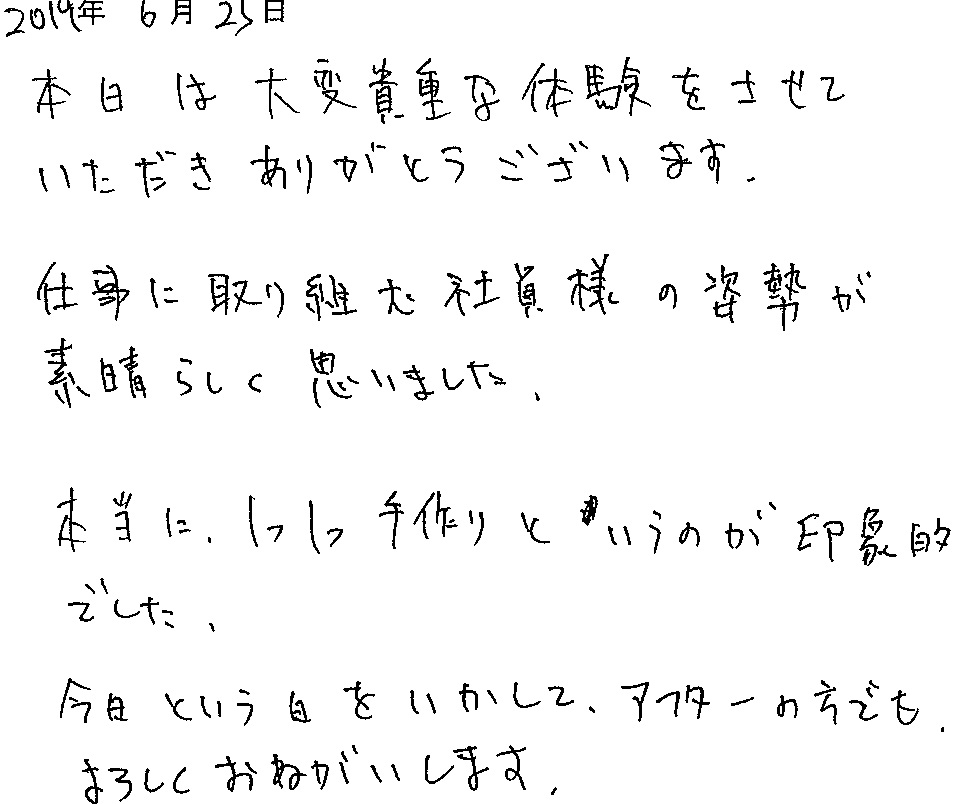 2019年 6月25日
本日は大変貴重な体験をさせて
いただきありがとうございます.
仕事に取り継む社員様の姿勢が
素晴らしく思いました.
本当に、1つ1つ手作りというのが印象的
でした.
今日という日をいかして、アフターの方でも.
よろしくおねがいします.